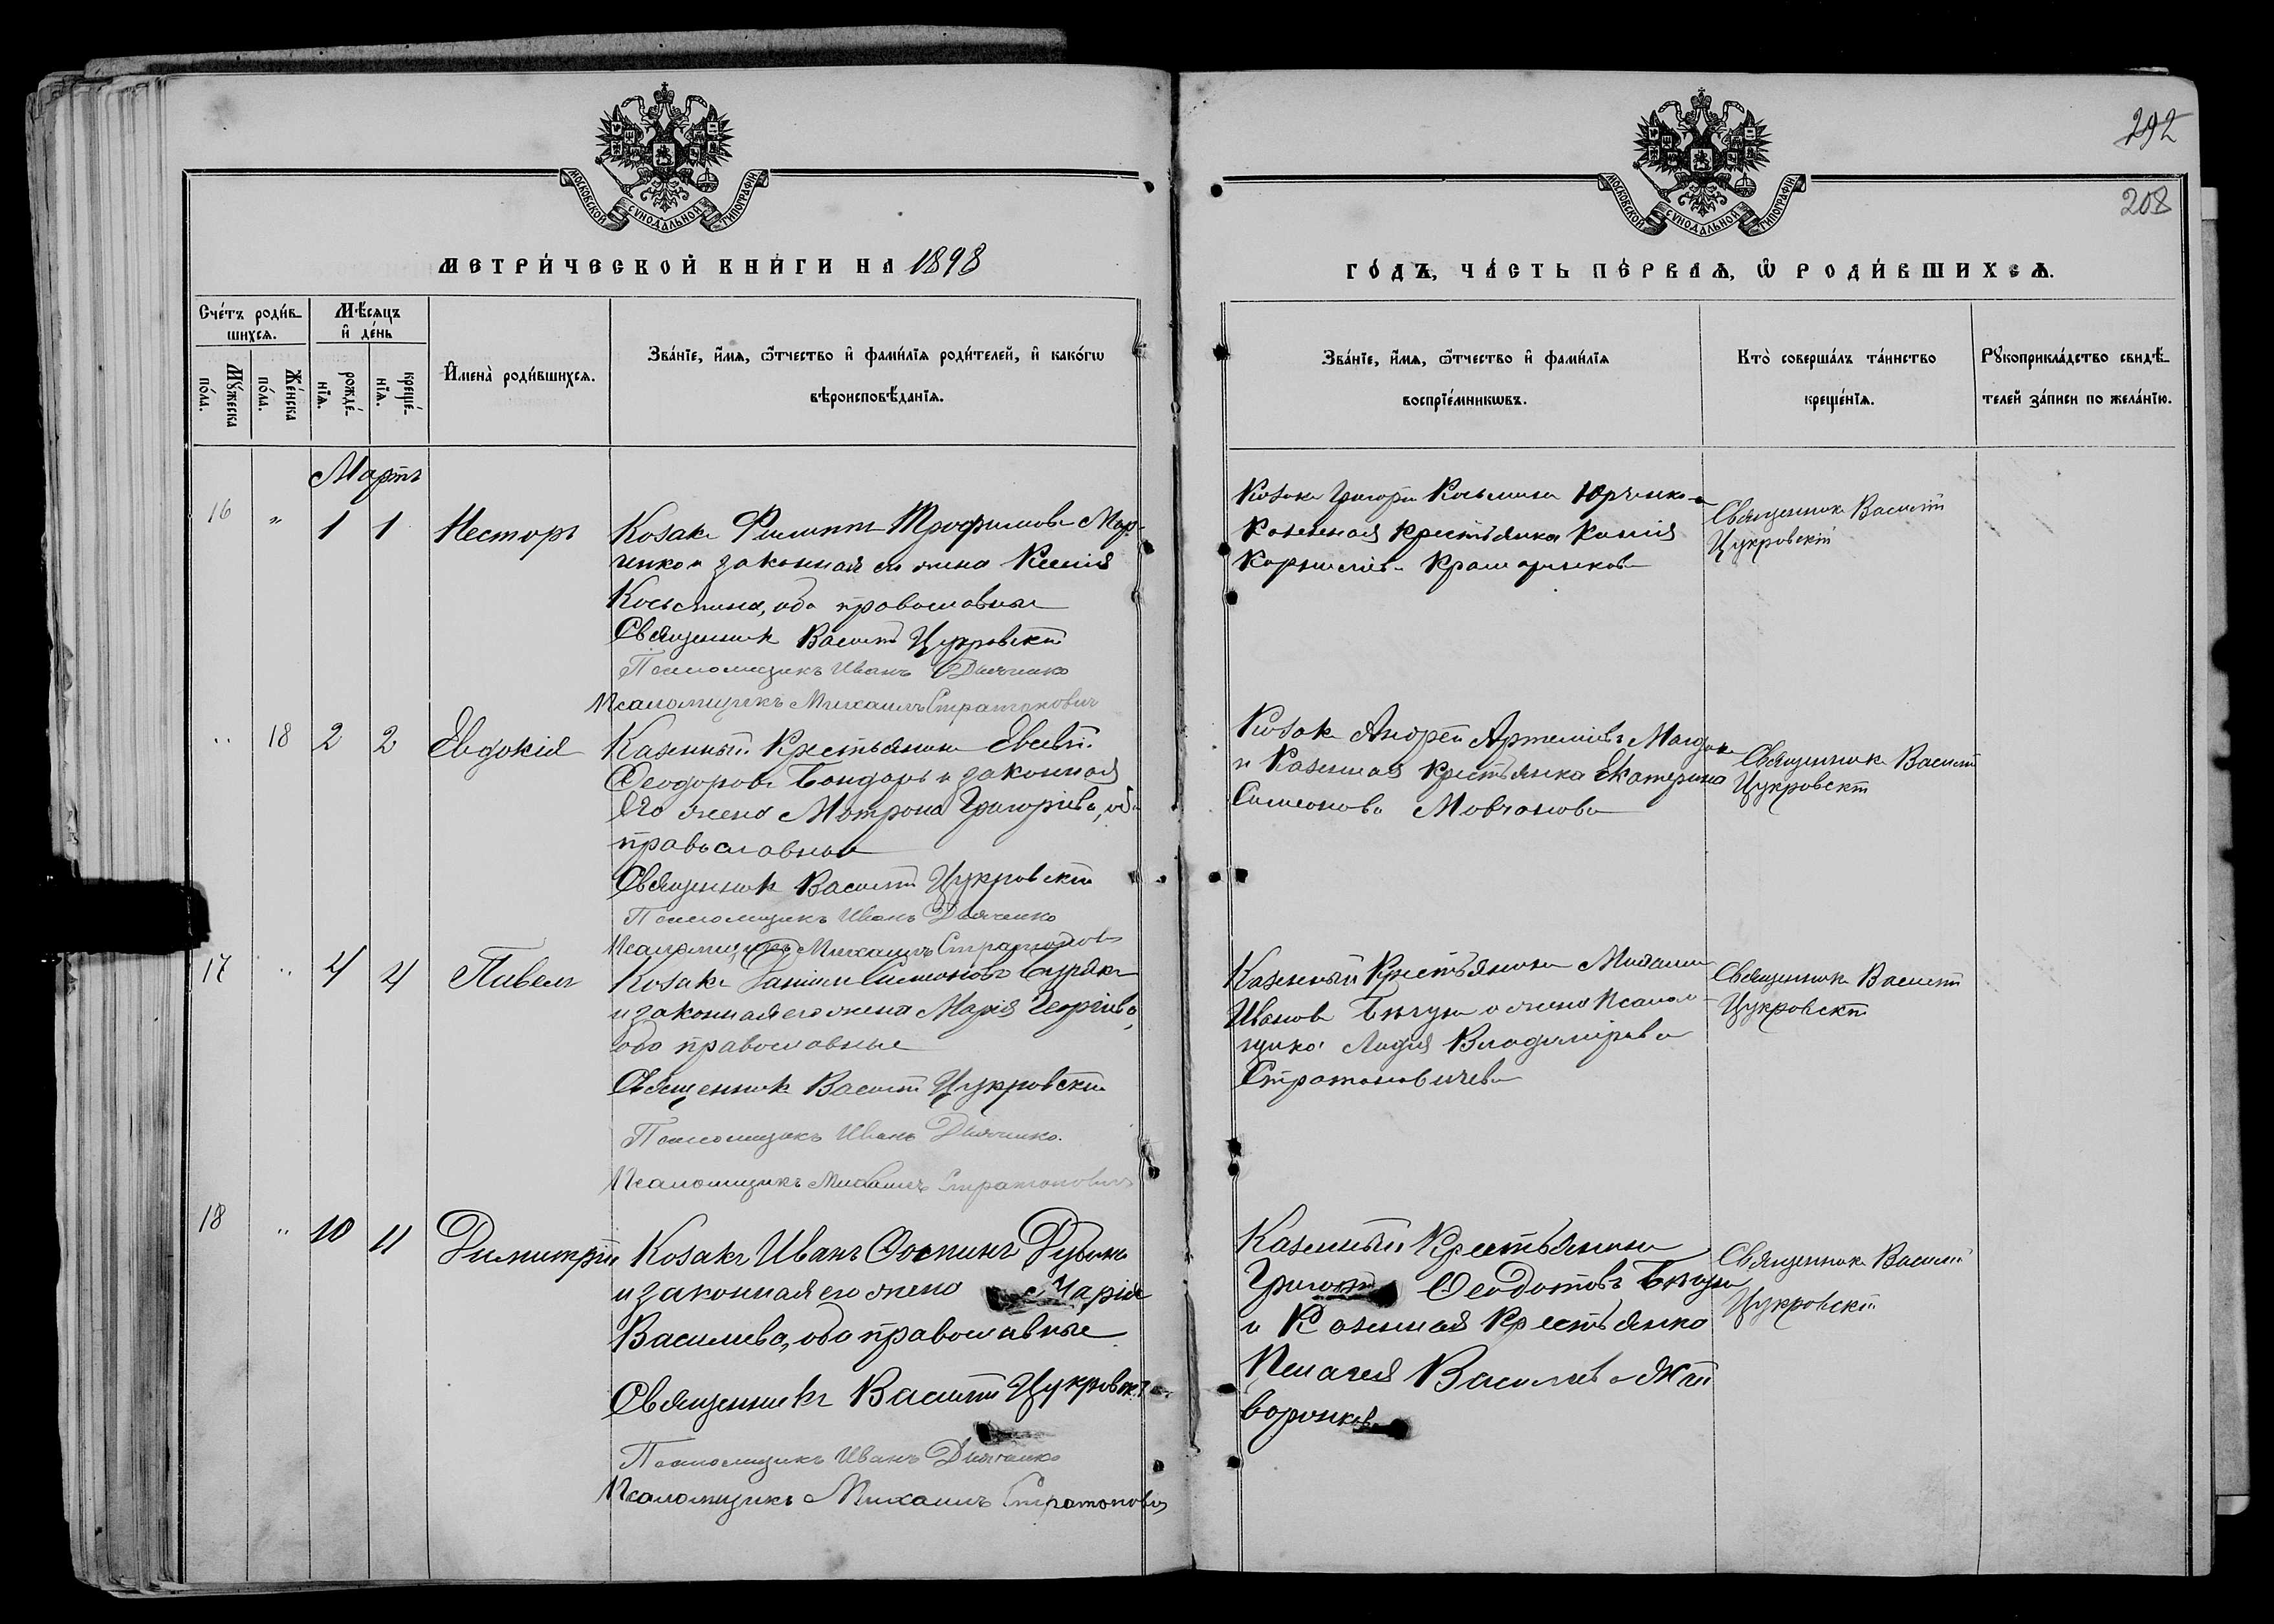 292
208
МОСКОВСКОЙ СѴНОДАЛЬНОЙ ТИПОГРАФІИ.
МОСКОВСКОЙ СѴНОДАЛЬНОЙ ТИПОГРАФІИ.
МЕТРИ́ЧЕСКОЙ КНИ́ГИ НА 1898
ГО́ДЪ, ЧА́СТЬ ПЕ́РВАѦ, Ѡ РОДИ́ВШИХСѦ.
Сче́тъ роди́в-
шихсѧ.
Мꙋ́жеска
по́ла.
Же́нска
по́ла.
Мѣ́сѧцъ
и҆ де́нь
рожде́-
нїѧ.
креще́-
нїѧ.
И҆мена̀ роди́вшихсѧ.
Зва́нїе, и҆́мѧ, ѻ҆́тчество и҆ фами́лїѧ роди́телей, и҆ како́гѡ
вѣроисповѣ́данїѧ.
Зва́нїе, и҆́мѧ, ѻ҆́тчество и҆ фами́лїѧ
воспрїе́мникѡвъ.
Кто̀ соверша́лъ та́инство
креще́нїѧ.
Рꙋкоприкла́дство свидѣ́-
телей за́писи по жела́нїю.
Мартъ
16 " 1 1 Несторъ
Козакъ Филиппъ Трофимовъ Мар-
ченко и законная его жена Ксенія
Косьмина, оба православные
Священникъ Василій Цукровскій
Псаломщикъ Иванъ Дьяченко
Псаломщикъ Михаилъ Стратановичъ
Козакъ Григорій Косьминъ Юрченко и
Казенная крестьянка Ксенія
Корниліева
Священникъ Василій
Цукровскій
" 18 2 2 Евдокія
Казенный Крестьянинъ Евсевій
Феодоровъ Бондарь и законная
его жена Мотрона Григоріева, оба
православные
Священникъ Василій Цукровскій
Псаломщикъ Иванъ Дьяченко
Псаломщикъ Михаилъ Стратановичъ
Козакъ Андрей Артеміевъ
и Казенная крестьянка Екатерина
Симеонова Мовчанова
Священникъ Василій
Цукровскій
17 " 4 4 Павелъ
Козакъ Даніилъ Симоновъ Бурякъ
и законная его жена Марія Георгіева,
оба православные
Священникъ Василій Цукровскій
Псаломщикъ Иванъ Дьяченко.
Псаломщикъ Михаилъ Стратановичъ
Казенный Крестьянинъ Михаилъ
Ивановъ и жена Псалом-
щика Лидія Владимірова
Стратановичева
Священникъ Василій
Цукровскій
18 " 10 11 Димитрій
Козакъ Иванъ
и законная его жена Марія
Василіева, оба православные
Священникъ Василій Цукровскій
Псаломщикъ Иванъ Дьяченко
Псаломщикъ Михаилъ Стратановичъ
Казенный Крестьянинъ
Григорій Феодотовъ
и Казенная Крестьянка
Пелагея Василіева
Священникъ Василій
Цукровскій